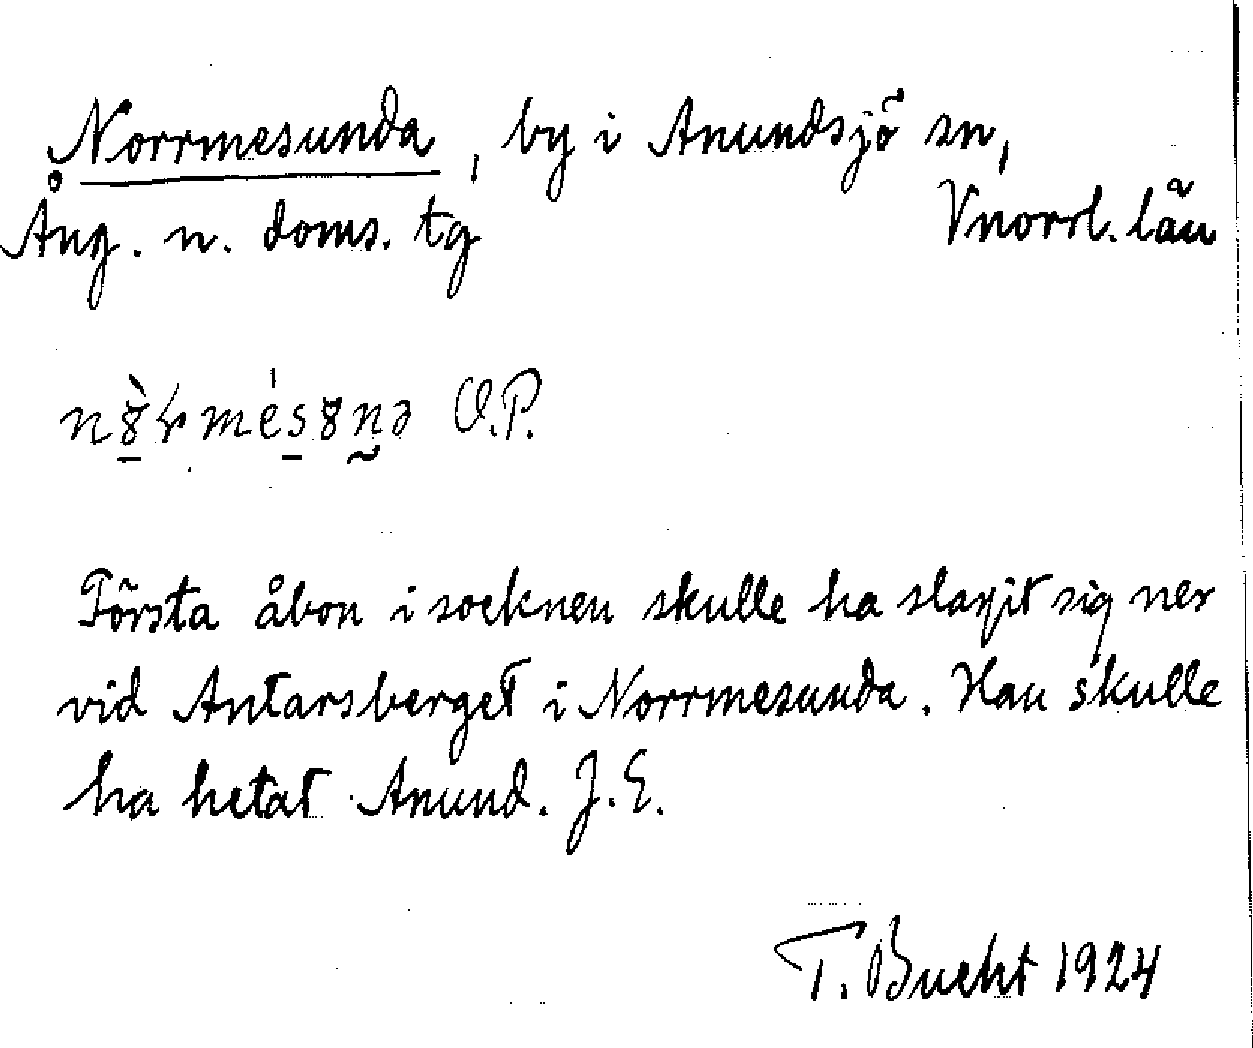 Norrmesunda, by i Anundsjö sn,
Ång. n. doms. tg Vnorrl. län
O.P.
Första åbon i socknen skulle ha slagit sig ner
vid Antarsberget i Norrmesunda. Han skulle
ha hetat Anund. J.E.
T. Bucht 1924